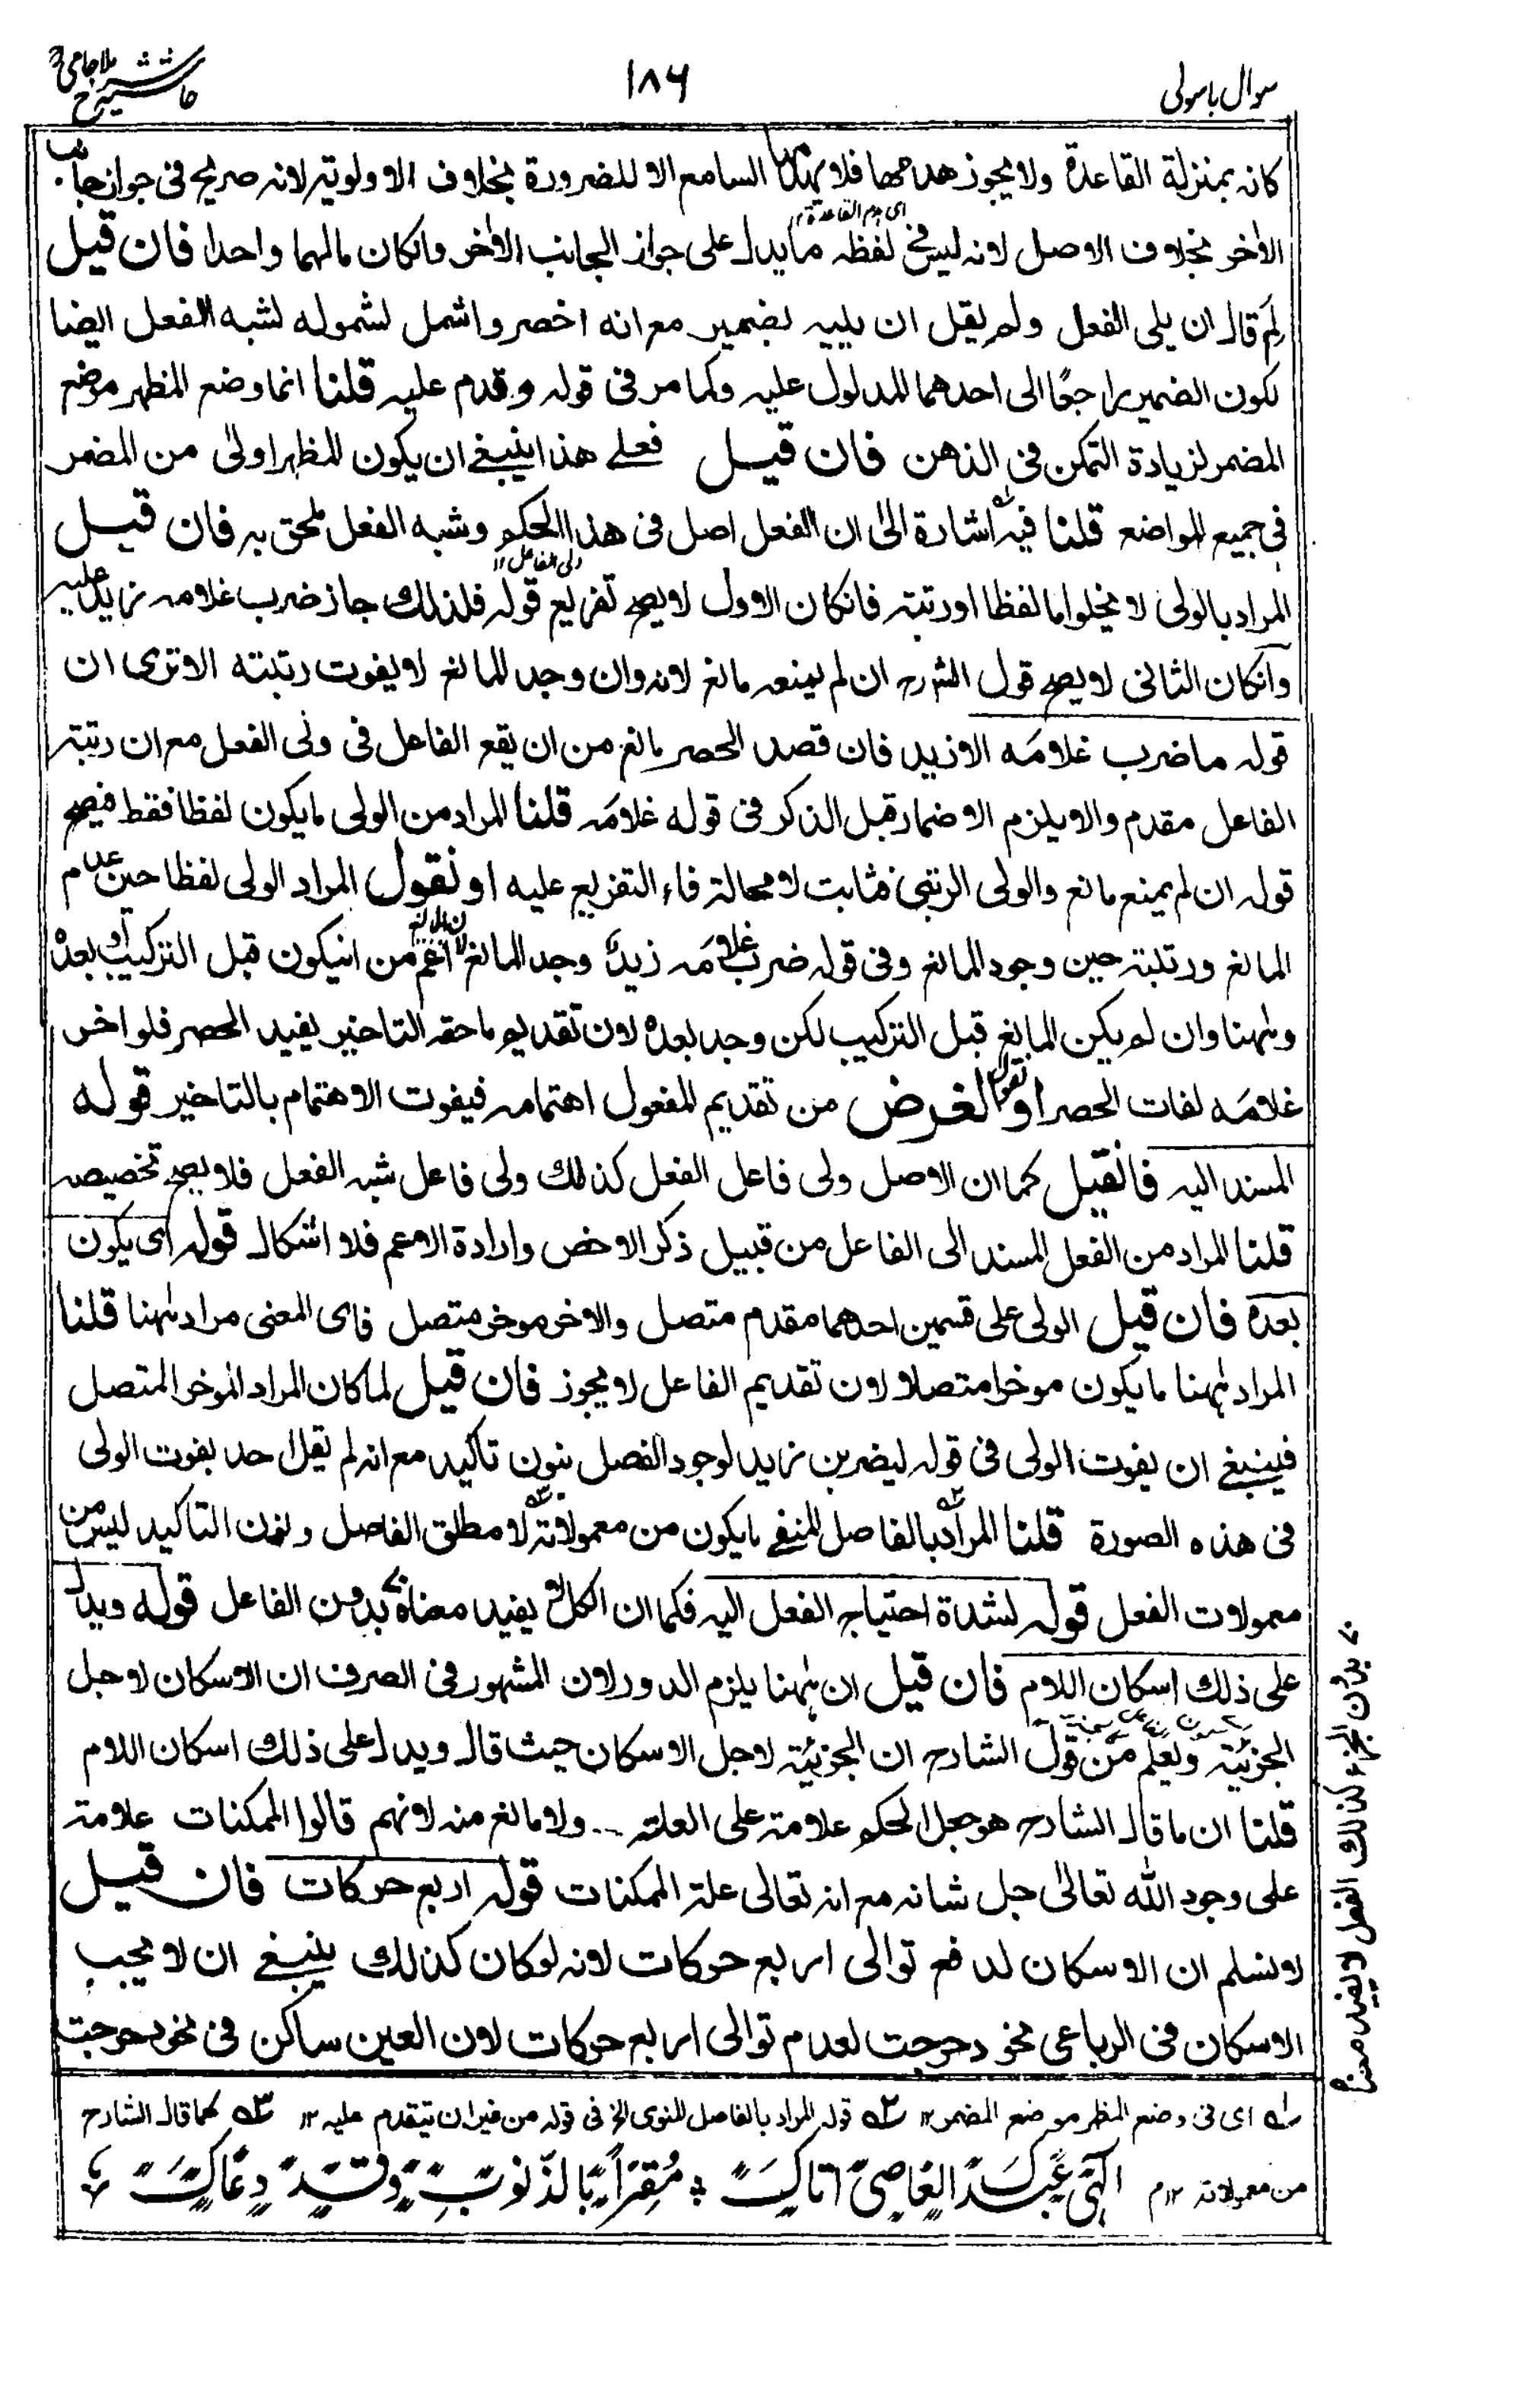 سوال باسولی
۱۸۶
حاشیہ شرح ملا جامی
کانہ بمنزلة القاعدة ولا یجوز ھدمھا فلا یھدمھا السامع الا للضرورة بخلاف الاولویة لانہ صریح فی جواز جانب
ای ہدم القاعدة
الاخر بخلاف الاصل لانہ لیس فی لفظہ ما یدل علی جواز الجانب الاخر وانکان مالھما واحدا فان قیل
لِمَ قال ان یلی الفعل ولم یقل ان یلیہ بضمیر مع انہ اخصر واشمل لشمولہ لشبہ الفعل ایضا
لکون الضمیر راجعًا الی احدھما المدلول علیہ وکما مر فی قولہ وقدم علیہ قلنا انما وضع المظھر موضع
المضمر لزیادة التمکن فی الذھن فان قیل فعلے ھذا ینبغے ان یکون المظھر اولی من المضمر
فی جمیع المواضع قلنا فیہ اشارة الیٰ ان الفعل اصل فی ھذا الحکم وشبہ الفعل ملحق بہ فان قیل
ولی الفاعل ۱۱
المراد بالولی لا یخلوا ما لفظا او رتبة فانکان الاول لا یصح تفریع قولہ فلذلک جاز ضرب غلامہ زید علیہ
وانکان الثانی لا یصح قول الشرح ان لم یمنعہ مانع لانہ وان وجد المانع لا یفوت رتبتہ الا تری ان
قولہ ما ضرب غلامَہ الا زید فان قصد الحصر مانع من ان یقع الفاعل فی ولی الفعل مع ان رتبتہ
الفاعل مقدم والا یلزم الاضمار قبل الذکر فی قولہ غلامَہ قلنا المراد من الولی ما یکون لفظا فقط فیصح
قولہ ان لم یمنع مانع والولی الرتبی فثابت لا محالة فاء التفریع علیہ او نقول المراد الولی لفظا حین عدم
المانع ورتبتہ حین وجود المانع وفی قولہ ضرب غلامَہ زیدٌ وجد المانع لان المانع اعم من انیکون قبل الترکیب او بعدہ
وٰھھنا وان لم یکن المانع قبل الترکیب لکن وجد بعدہ لان تقدیم ما حقہ التاخیر یفید الحصر فلو اخر
غلامَہ لفات الحصر او نقول الغرض من تقدیم المفعول اھتمامہ فیفوت الاھتمام بالتاخیر قولہ
المسند الیہ فانقیل کما ان الاصل ولی فاعل الفعل کذلک ولی فاعل شبہ الفعل فلا یصح تخصیصہ
قلنا المراد من الفعل المسند الی الفاعل من قبیل ذکر الاخص وارادة الاعم فلا اشکال قولہ ای یکون
بعدہ فان قیل الولی علی قسمین احدھما مقدم متصل والاخر موخر متصل فای المعنی مراد ٰھھنا قلنا
المراد ٰھھنا ما یکون موخرا متصلا لان تقدیم الفاعل لا یجوز فان قیل لما کان المراد الموخر المتصل
فینبغے ان یفوت الولی فی قولہ لیضربن زید لوجود الفصل بنون تاکید مع انہ لم یقل احد بفوت الولی
فی ھذہ الصورة قلنا المراد بالفاصل المنفے ما یکون من معمولاتہ لا مطلق الفاصل ونون التاکید لیس من
معمولات الفعل قولہ لشدة احتیاج الفعل الیہ فکما ان الکل لا یفید معناہ بدون الفاعل قولہ ویدل
علی ذلک اسکان اللام فان قیل ان ٰھھنا یلزم الدور لان المشھور فی الصرف ان الاسکان لاجل
الجزئیة ویعلم من قول الشارح ان الجزئیة لاجل الاسکان حیث قال ویدل علی ذلک اسکان اللام
قلنا ان ما قال الشارح ھو جعل الحکم علامة علی العلة ولا مانع منہ لانھم قالوا الممکنات علامة
علی وجود اللہ تعالیٰ جل شانہ مع انہ تعالی علة الممکنات قولہ اربع حرکات فان قیل
لا نسلم ان الاسکان لدفع توالی اربع حرکات لانہ لو کان کذلک ینبغے ان لا یجب
الاسکان فی الرباعی نحو دحرجت لعدم توالی اربع حرکات لان العین ساکن فی نحو دحرجت
بدون الجزء کذالک الفعل لا یفید معناہ
لہ ای فی وضع المظہر موضع المضمر ۱۲ ۲ہ قولہ المراد بالفاصل المنوی الخ فی قولہ من غیر ان یتقدم علیہ ۱۲ ۳ہ کما قال الشارح
من معمولاتہ ۱۲م الٰہی عَبْدُکَ العَاصِیْ اَتَاکَ ؞ مُقِرًّا بِالذُّنُوْبِ وَقَدْ دَعَاکَ